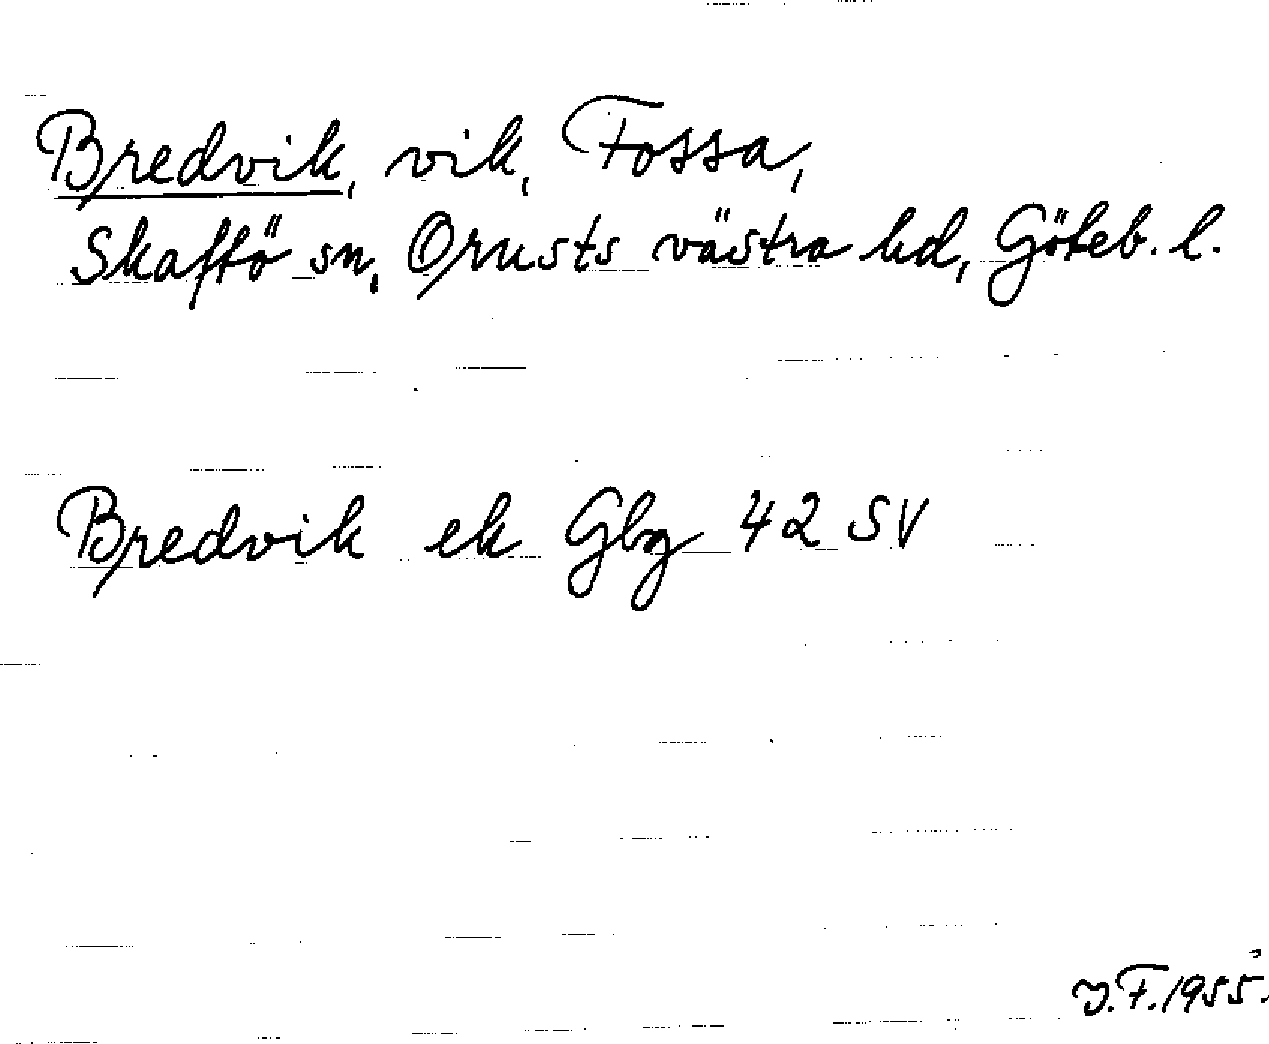 Bredvik, vik, Fossa,
Skaftö sn, Orusts västra hd, Göteb. l.
Bredvik ek Gbg 42 SV
J.F. 1955.